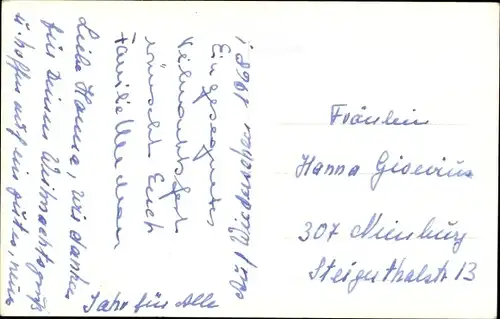 1968.
Ein gesegnetes
Weihnachtsfest
wünscht Euch
Familie
Liebe Hanna, wir danken
für Deinen Weihnachtsgruß
u. hoffen auf ein gutes, neues
Jahr für Alle
Fräulein
Hanna Gisevius
307 Nienburg
Steigerthalstr 13